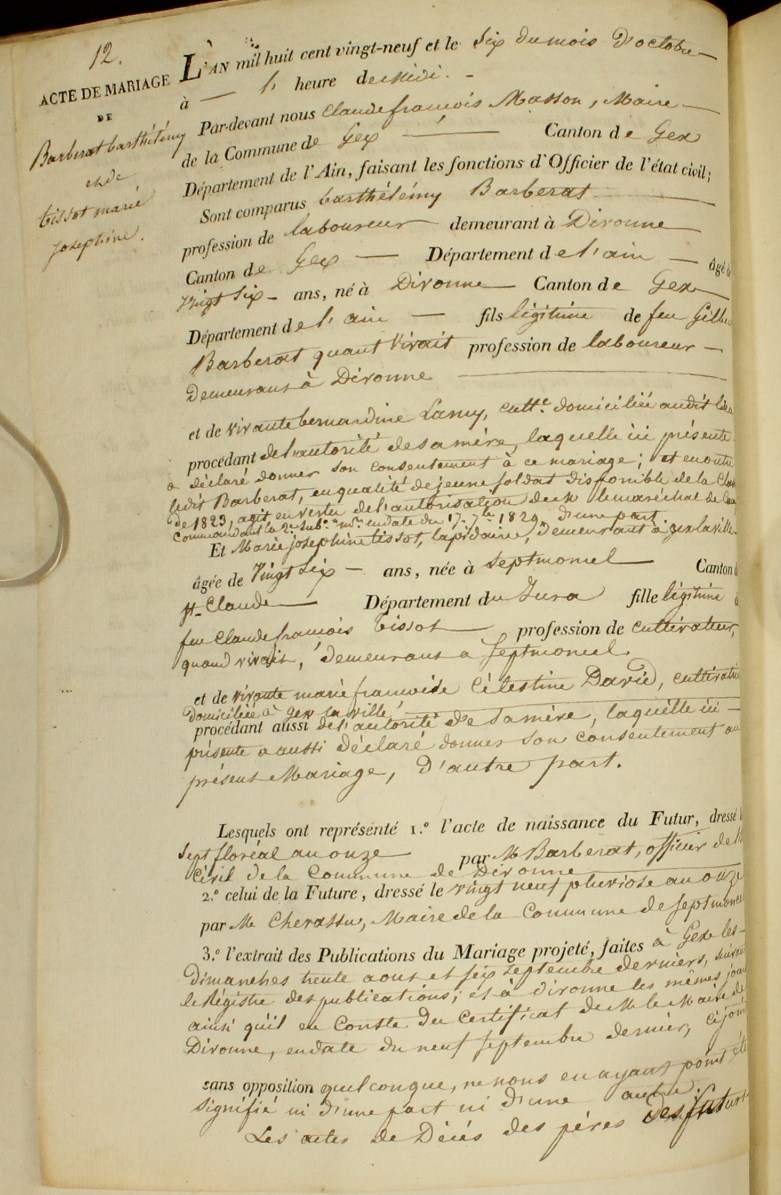 12.
ACTE DE MARIAGE
DE
Barberat barthélémy
et de
tissot marie
josephine.
L'AN mil huit cent vingt-neuf et le Six du mois d'octobre
à l' heure de Midi.
Par-devant nous Claude françois Masson, Maire
de la Commune de Gex Canton de Gex
Département de l'Ain, faisant les fonctions d'Officier de l'état civil;
Sont comparus barthélémy Barberat
profession de laboureur demeurant à Divonne
Canton de Gex Département de l'ain âgé de
Vingt Six ans, né à Divonne Canton de Gex
Département de l'ain fils légitime de feu
Barberat quant vivait profession de laboureur
demeurant à Divonne
et de vivante bernardine Lamy, cultte. domiciliée audit lieu
procédant de l'autorité de sa mère, laquelle ici présente
a déclaré donner son consentement à ce mariage; et en outre
ledit Barberat, en qualité de jeune soldat disponible de la
de 1823, agit en vertu de l'autorisation de M le maréchal de
Commandant la 2e. Subon. en date du 17. 7bre 1829. d'une part
Et Marie josephine tissot, lapidaire, demeurant à gex la ville
âgée de Vingt Six ans, née à Septmoncel Canton de
St. Claude Département du Jura fille légitime de
feu Claude françois tissot profession de cultivateur,
quand vivait, demeurant a Septmoncel
et de vivante marie francoise Célestine David, cultivatrice
domiciliée à Gex la ville,
procédant aussi de l'autorité de sa mère, laquelle ici
présente a aussi déclaré donner son consentement au
présent Mariage, d'autre part.
Lesquels ont représenté 1.º l'acte de naissance du Futur, dressé le
Sept floréal an onze par M Barberat, officier de l'état
Civil de la Commune de Divonne
2.º celui de la Future, dressé le vingt neuf pluviose an onze
par M Maire de la Commune de Septmoncel
3.º l'extrait des Publications du Mariage projeté, faites à Gex les
Dimanches trente aout et six septembre derniers, suivant
le Régistre des publications; et à divonne les mêmes jours
ainsi qu'il en Conste du Certificat de M le Maire de
Divonne, en date du neuf Septembre dernier, ci joint
sans opposition quelconque, ne nous en ayant point été
signifié ni d'une part ni d'une autre.
Les actes de Décés des pères des futurs